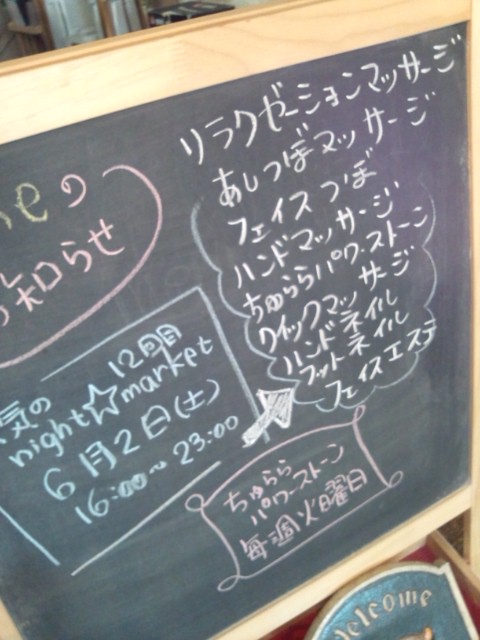 の
知らせ
リラクゼーションマッサージ
あしつぼマッサージ
フェイスつぼ
ハンドマッサージ
ちゅららパワーストーン
クイックマッサージ
ハンドネイル
フットネイル
フェイスエステ
12回目
気の
night☆market
6月2日(土)
16:00~23:00
ちゅらら
パワーストーン
毎週火曜日
Welcome